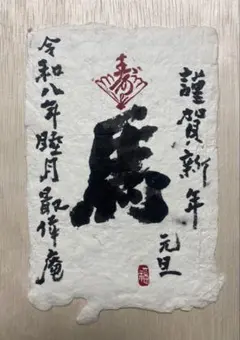 謹賀新年
元旦
寿
馬
令和八年睦月